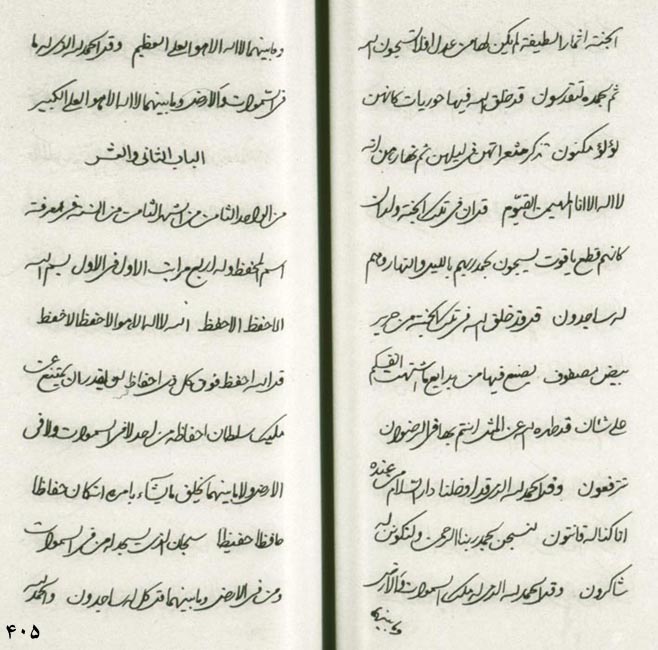 الجنة اثمار لطيفة لم يكن لها من عدل افلا تسبحون الله
ثم بحمده لتقدسون قد خلق الله فيها حوريات كانهن
لؤلؤ مكنون تذكر هنعراتهن في ليلهن ثم نهارهن انه
لا اله الا انا المهيمن القيوم قد ان في تلك الجنة ولدان
كانهم قطع ياقوت يسبحون بحمد ربهم بالليل والنهار وهم
له ساجدون قل وقد خلق الله في تلك الجنة من حرير
بيض مصفوف يصنع فيها من بدايع ما اشتهت انفسكم
على شان قد طهره الله عن المثل انتم بها في الرضوان
ترفعون وقل الحمد لله الذي قد ادخلنا دار السلام من عنده
انا كنا له قانتون لنسبحن بحمد ربنا الرحمن ولنكونن له
شاكرون وقل الحمد لله الذي له ملك السموات والارض
وما بينهما
وما بينهما لا اله الا هو العلي العظيم وقل الحمد لله الذي له ما
في السموات والارض وما بينهما لا اله الا هو العلي الكبير
الباب الثاني والعشر
من الواحد الثامن من الشهر الثامن من السنة في معرفة
اسم الحفظ وله اربع مراتب الاول في الاول بسم الله
الاحفظ الاحفظ الله لا اله الا هو الاحفظ الاحفظ
قل الله احفظ فوق كل ذي احفاظ لن يقدر ان يمتنع عن
مليك سلطان احفاظه من احد لا في السموات ولا في
الارض ولا ما بينهما يخلق ما يشاء بامره انه كان حفاظا
حافظا حفيظا سبحان الذي يسجد له من في السموات
ومن في الارض وما بينهما قل كل له ساجدون والحمد لله
۴۰۵